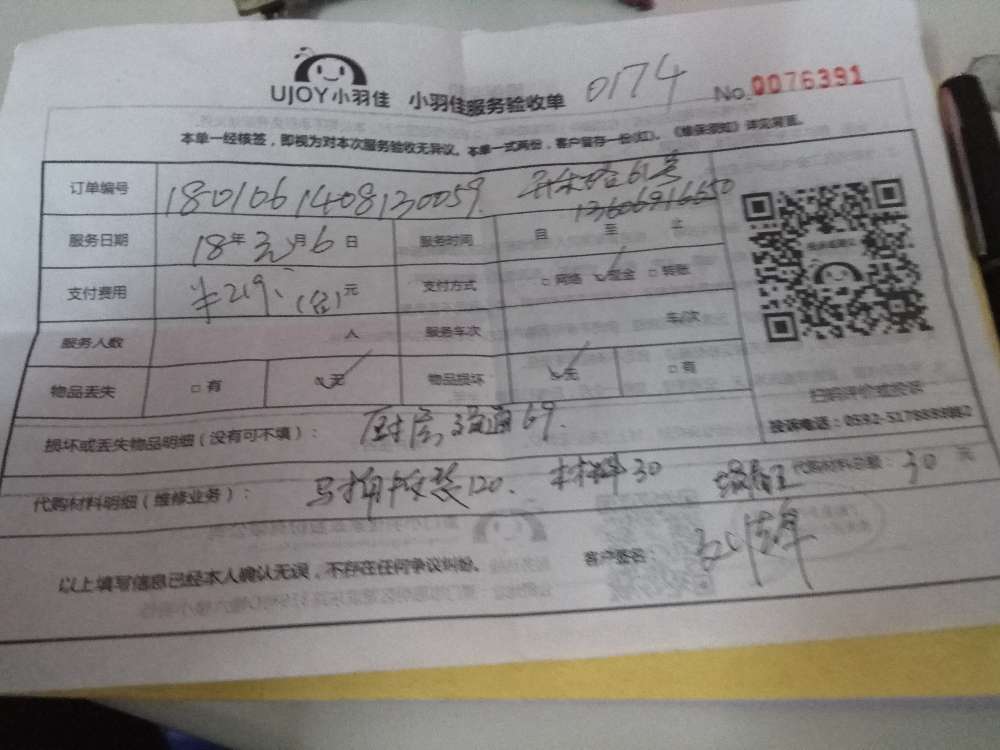 UJOY小羽佳 小羽佳服务验收单 0174 No.0076391
本单一经核签，即视为对本次服务验收无异议。本单一式两份，客户留存一份(红)。《维保须知》详见背面。
订单编号 1801061408130059 61号
13606916650
服务日期 18年 月6日 服务时间 自 至 止
支付费用 ¥219、 元 支付方式 □网络 ✓现金 □转账
服务人数 人 服务车次 车/次
物品丢失 □有 ✓无 物品损坏 ✓无 □有
扫码评价或投诉
损坏或丢失物品明细（没有可不填）： 厨房 通 69.
投诉电话：0592-5178888
代购材料明细（维修业务）： 马桶 安装120. 材料30 代购材料总额： 30 元
以上填写信息已经本人确认无误，不存在任何争议纠纷。 客户签名：